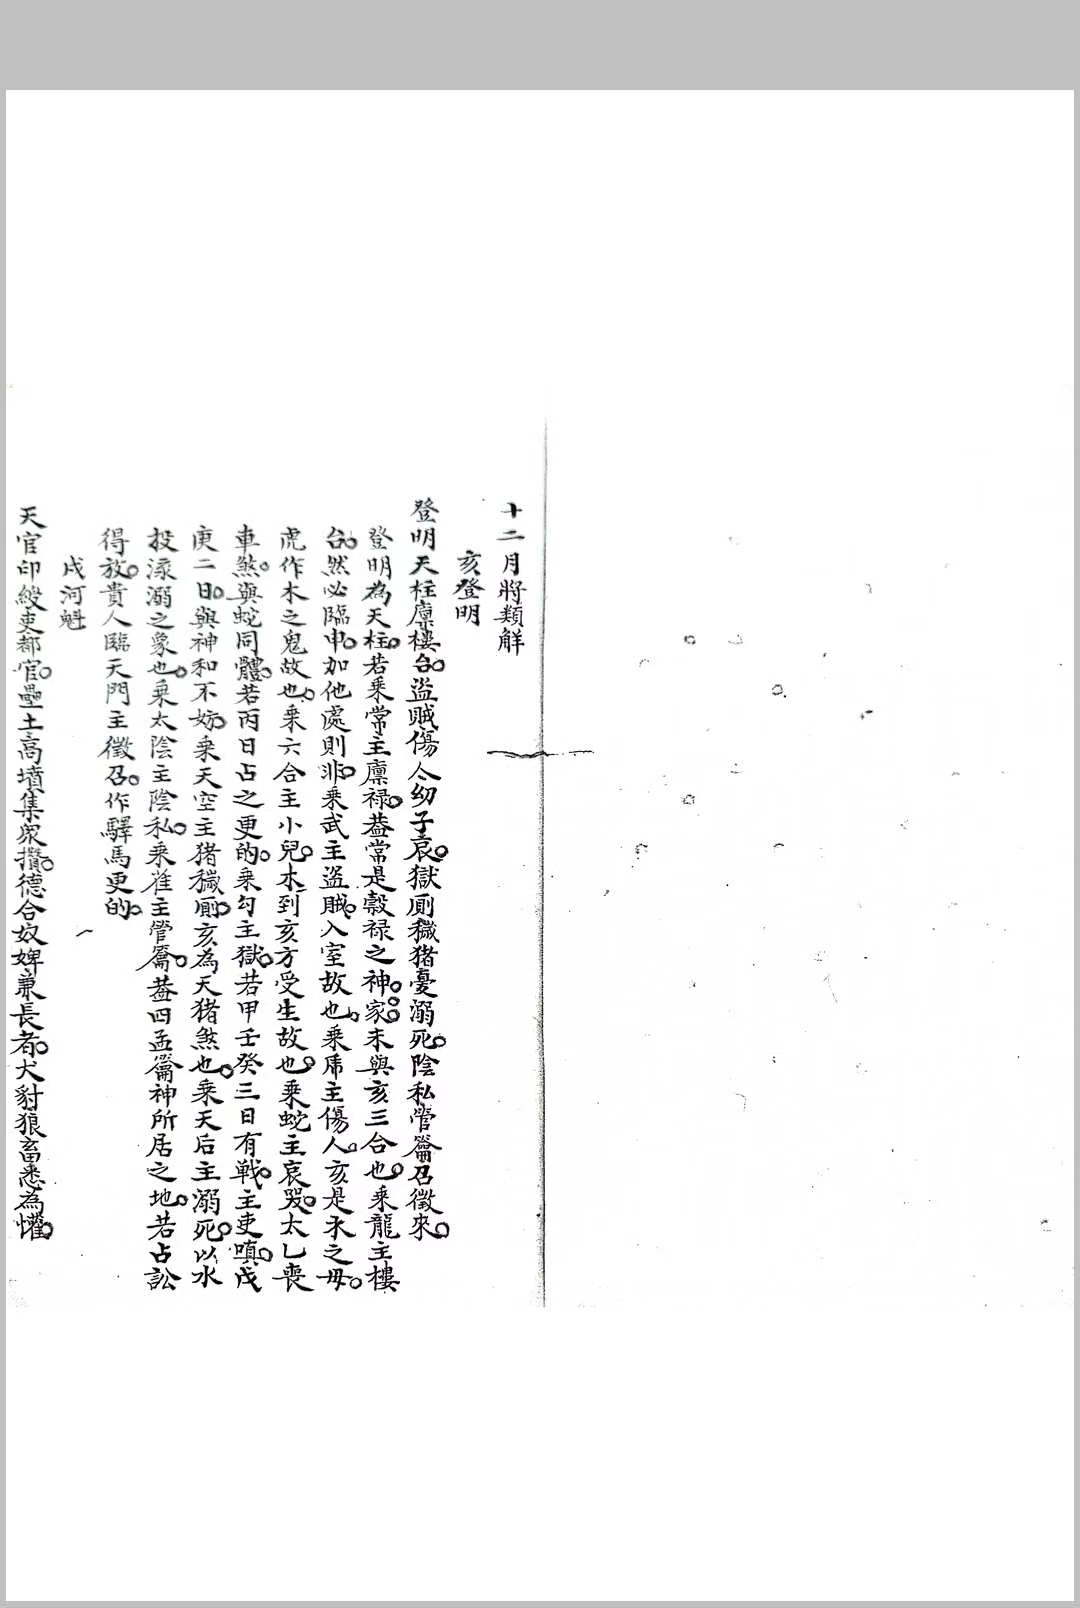 十二月將類觧
亥登明
登明天柱廩樓台。盜賊傷人幼子哀。獄厠穢猪憂溺死。陰私管籥召徵來。
登明為天柱。若乗常主廪禄。葢常是穀禄之神。家。未與亥三合也。乗龍主樓
台。然必臨申。加他處則非。乗武主盜賊。入室故也。乗虎主傷人。亥是木之毋。
虎作木之鬼故也。乗六合主小兒。木到亥方受生故也。乗蛇主哀哭。太乙喪
車煞。與蛇同體。若丙日占之更的。乗勾主獄。若甲壬癸三日有戰。主吏嗔。戊
庚二日。與神和不妨。乗天空主猪穢厠。亥為天猪煞也。乗天后主溺死。以水
投溺之象也。乗太陰主陰私。乗雀主管籥。葢四孟籥神所居之地。若占訟
得放。貴人臨天門主徵召。作驛馬更的。
戌河魁
天官印綬吏都官。壘土高墳集衆攢。德合奴婢兼長者。犬豺狼畜悉為懽。